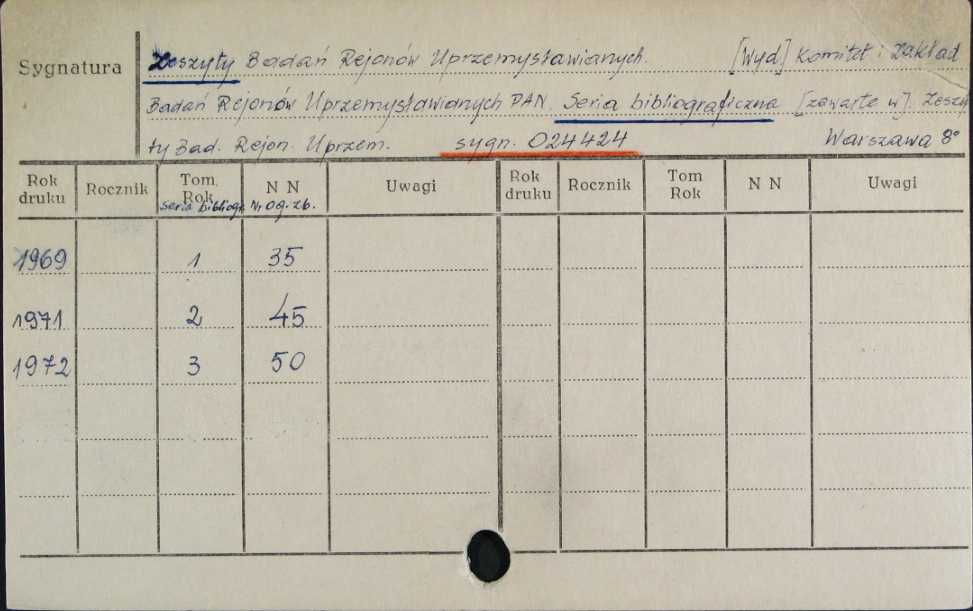 Sygnatura
Zeszyty Badań Rejonów Uprzemysławianych. [Wyd] Komitet i Zakład
Badań Rejonów Uprzemysławianych PAN. Seria bibliograficzna [zawarte w]. Zeszy
ty Bad. Rejon. Uprzem. sygn. 024424 Warszawa 8°
Rok druku Rocznik Tom Rok N N Uwagi Rok druku Rocznik Tom Rok N N Uwagi
Seria bibliogr. Nr og. zb.
1969 1 35
1971 2 45
1972 3 50